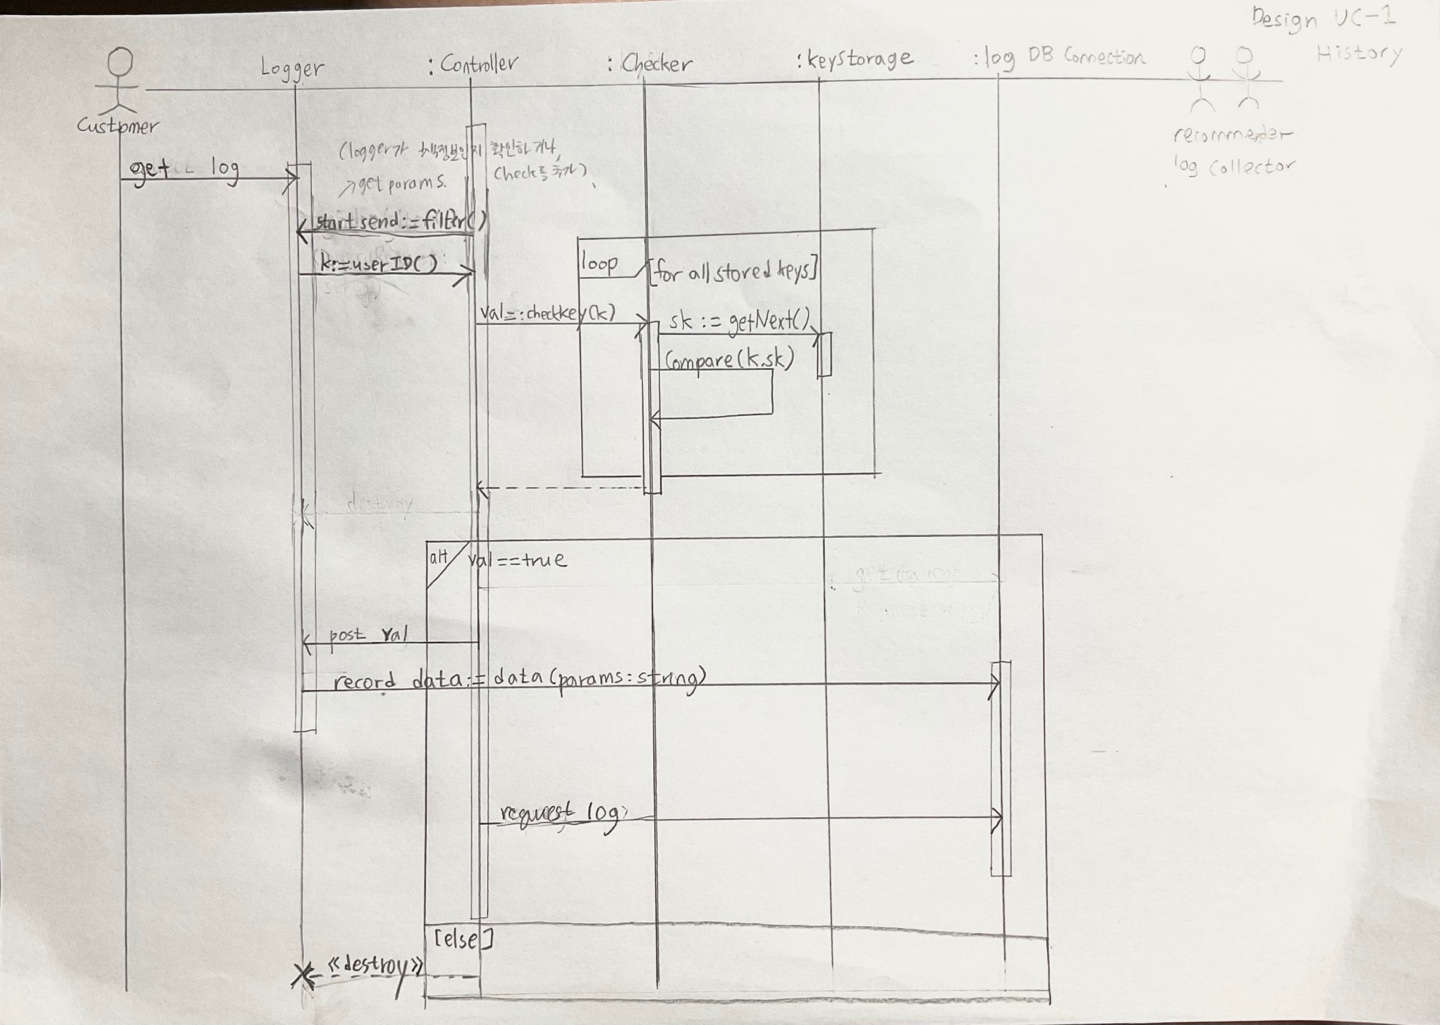 Design UC-1
History
Custpmer
Logger
: Controller
: Checker
: keyStorage
: log DB Connection
recommeder
log Collector
get log
(logger가 확인하거나,
check를 추가)
↗get params.
start send:=filter()
k:=userID()
loop
[for all stored keys]
val=:checkkey(k)
sk := getNext()
Compare(k.sk)
destroy
alt
val==true
post val
record data:= data(params:string)
request log
[else]
«destroy»